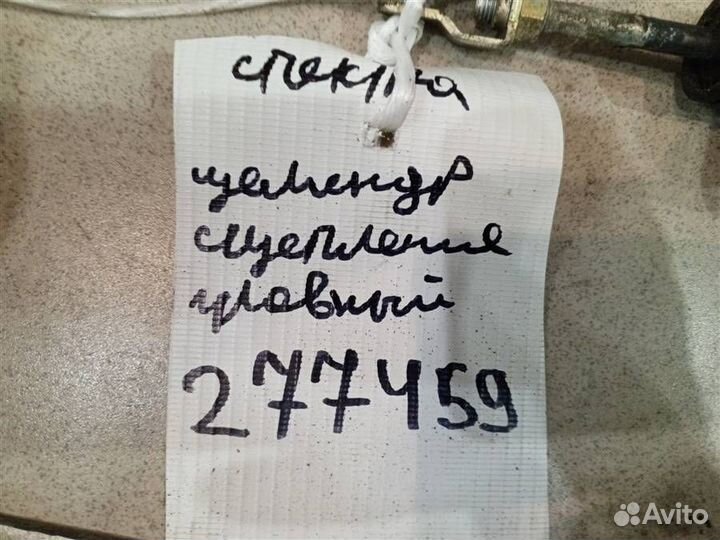 спектра
цилиндр
сцепления
главный
277459
Avito